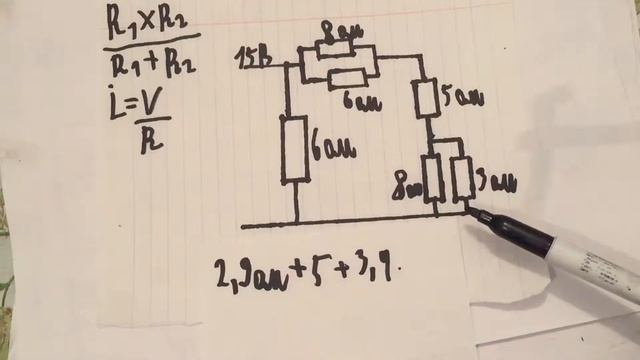 R₁×R₂
R₁+R₂
i=V
R
15В
8ом
6ом
5ом
6ом
8ом
3ом
2,9ом+5+3,4.